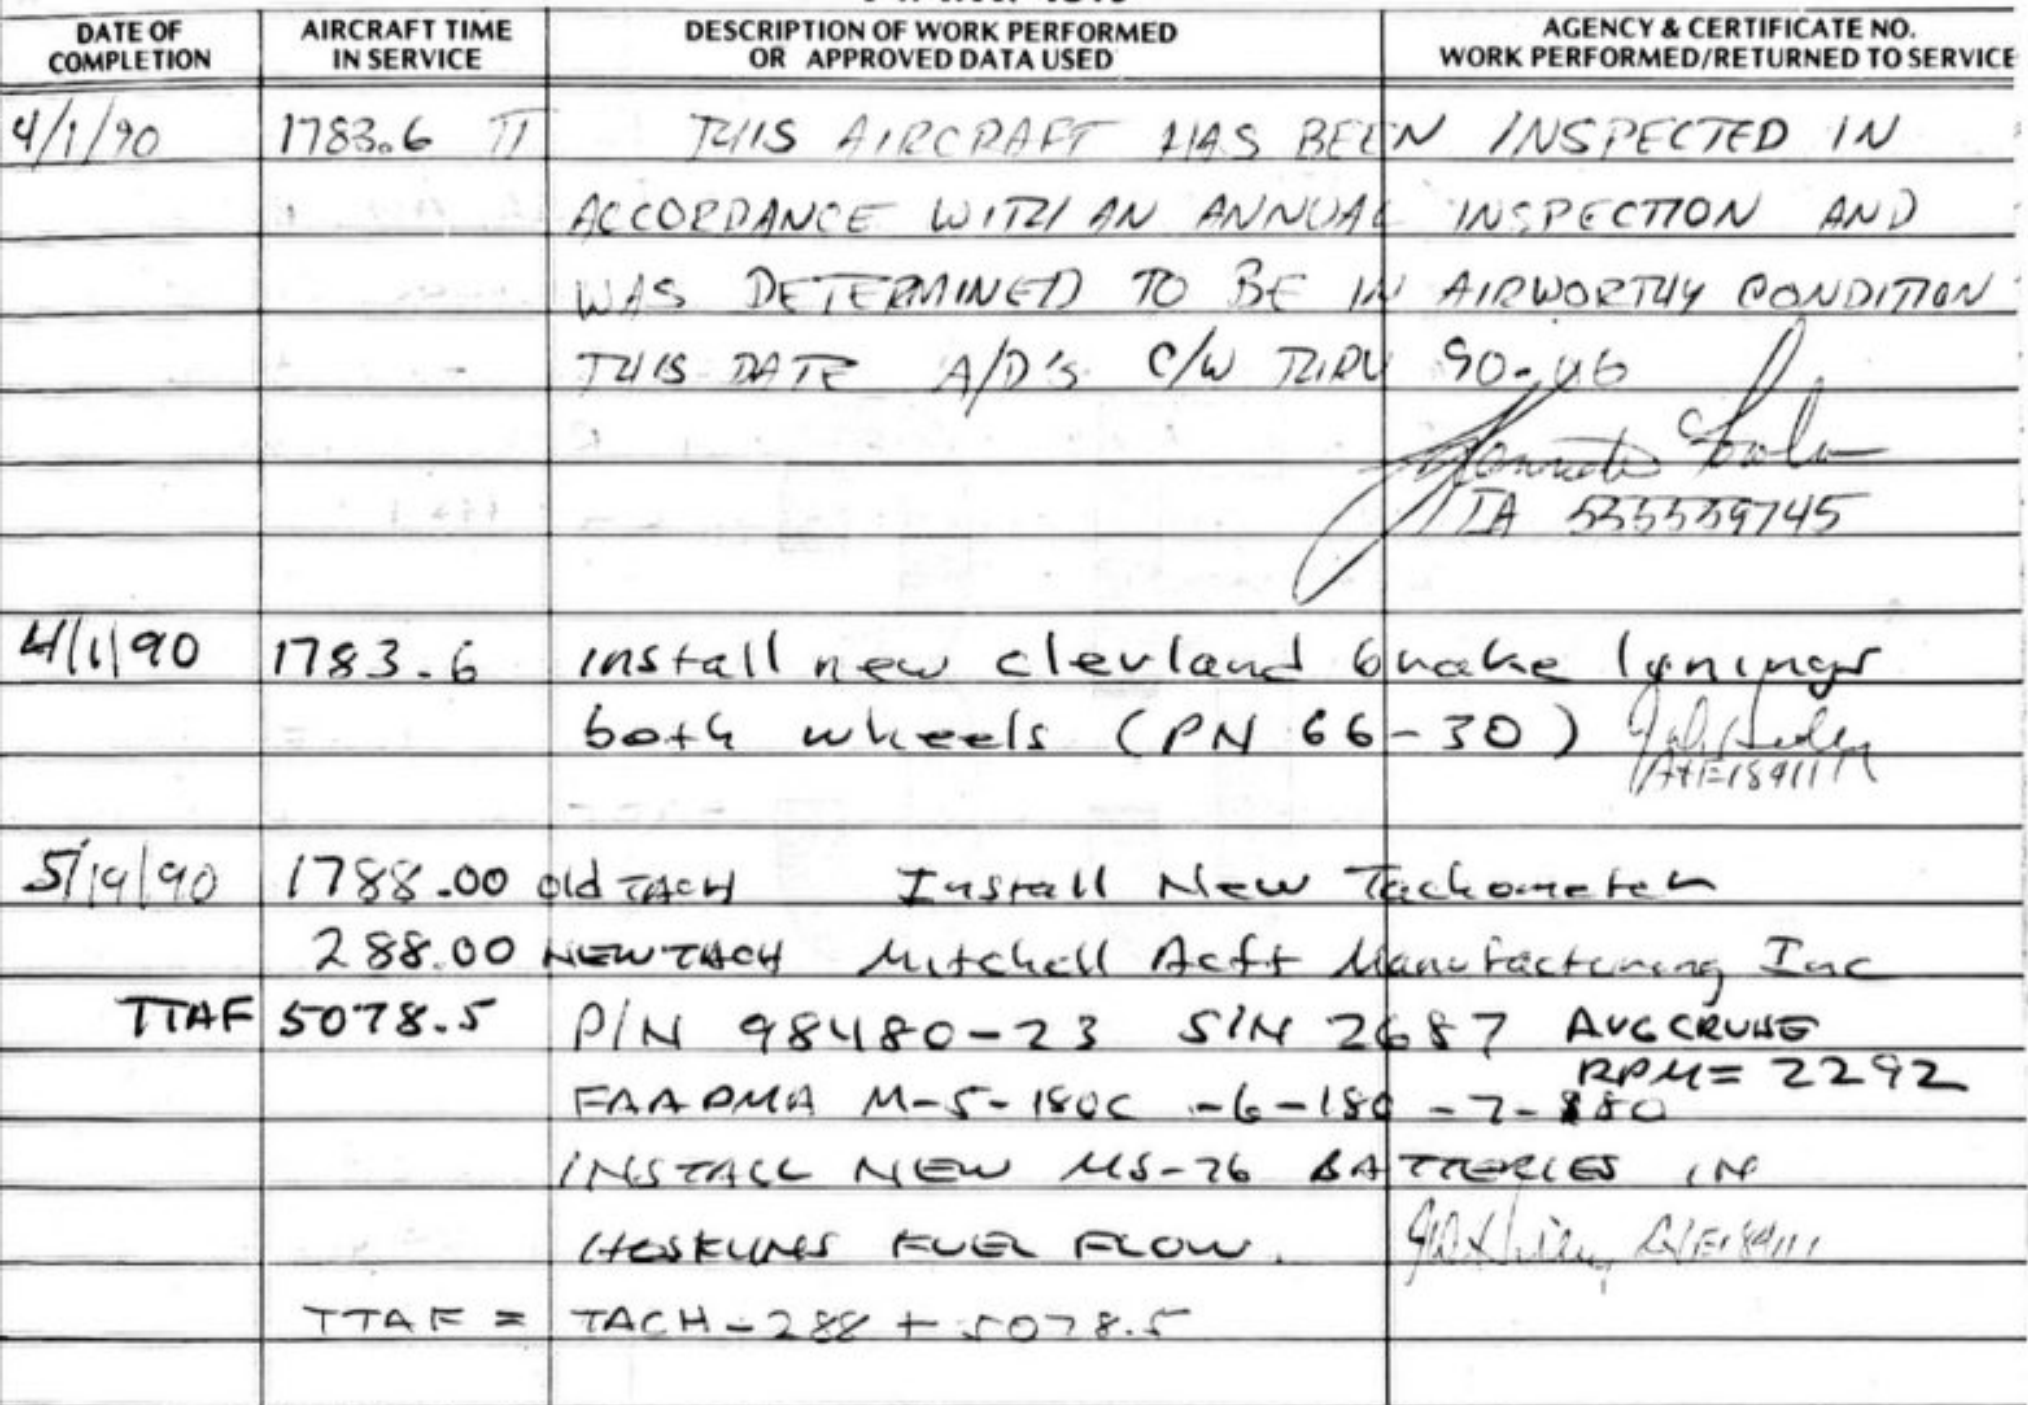 DATE OF COMPLETION
AIRCRAFT TIME IN SERVICE
DESCRIPTION OF WORK PERFORMED OR APPROVED DATA USED
AGENCY & CERTIFICATE NO. WORK PERFORMED/RETURNED TO SERVICE
4/1/90 1783.6 TT THIS AIRCRAFT HAS BEEN INSPECTED IN
ACCORDANCE WITH AN ANNUAL INSPECTION AND
WAS DETERMINED TO BE IN AIRWORTHY CONDITION
THIS DATE A/D'S C/W THRU 90-06
IA 555559745
4/1/90 1783.6 install new clevland brake lynings
both wheels (PN 66-30)
5/19/90 1788.00 old TACH Install New Tachometer
288.00 NEW TACH Mitchell Acft Manufacturing Inc
TTAF 5078.5 P/N 98480-23 S/N 2687 AVG CRUISE
RPM = 2292
FAAPMA M-5-180C -6-180 -7-
INSTALL NEW MS-76 BATTERIES IN
HOSKINS FUEL FLOW.
TTAF = TACH - 288 + 5078.5